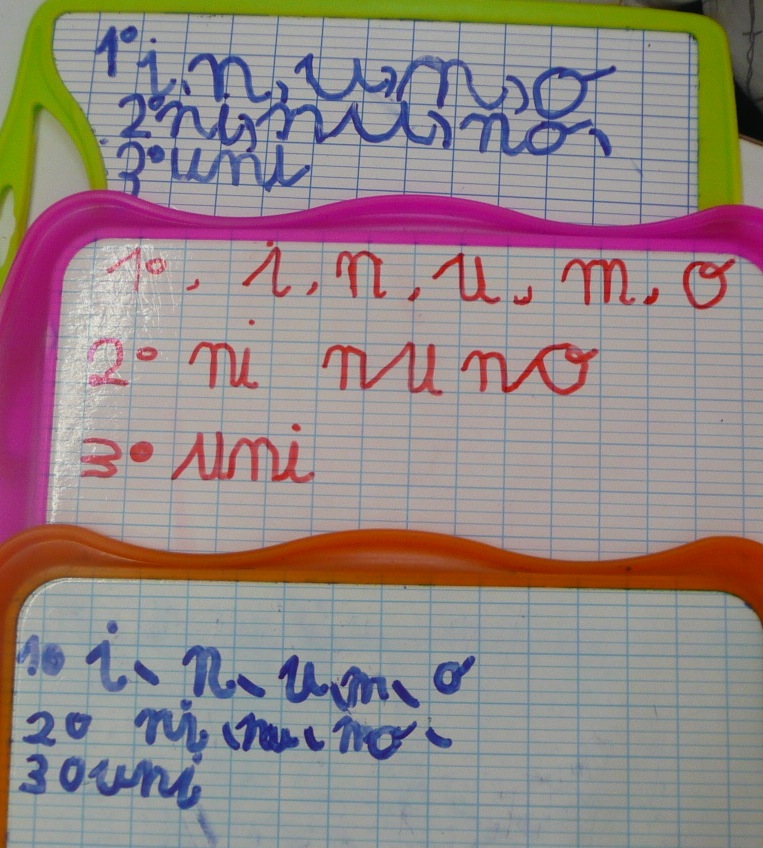 1° i, n, u, m, o
2° ni, nu, no,
3° uni
1°. i, n, u, m, o
2° ni nu no
3° uni
1° i, n, u, m, o
2° ni, nu, no,
3° uni